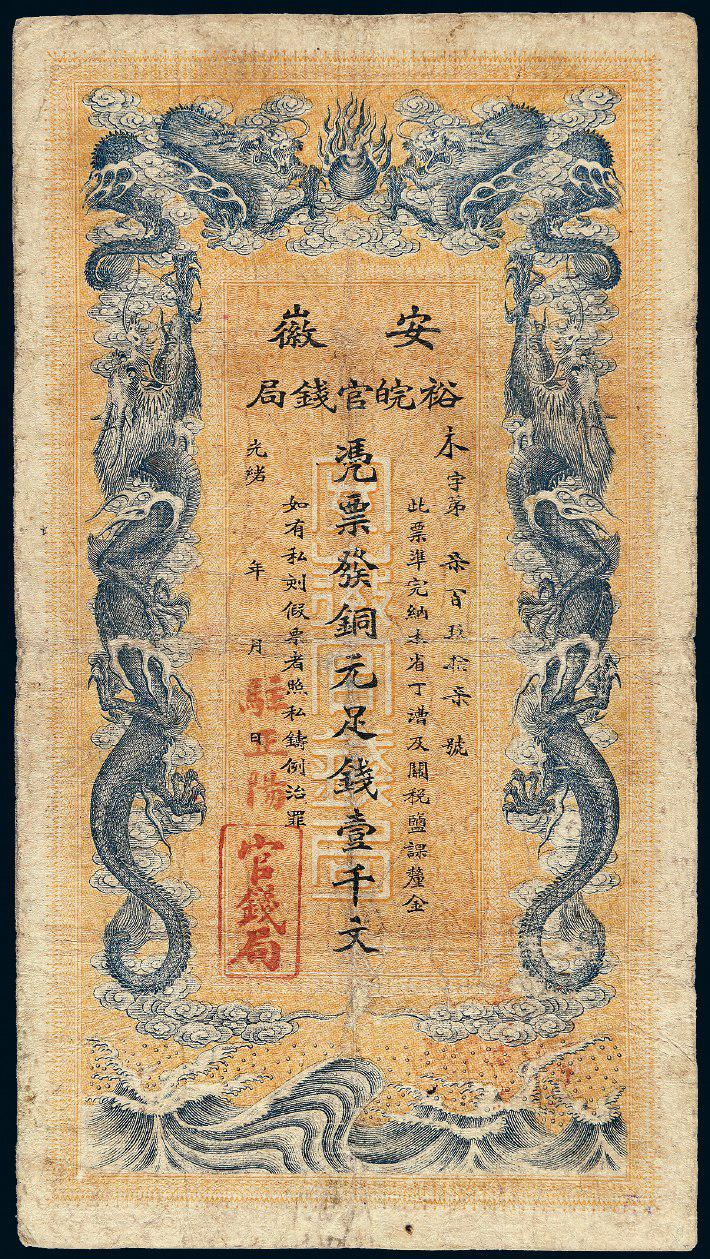 安徽
裕皖官錢局
字第柒百拾柒號
此票準完納本省丁漕及關稅鹽課釐金
憑票發銅元足錢壹千文
如有私刻假票者照私鑄例治罪
光緒 年 月 日
駐正陽
官錢局